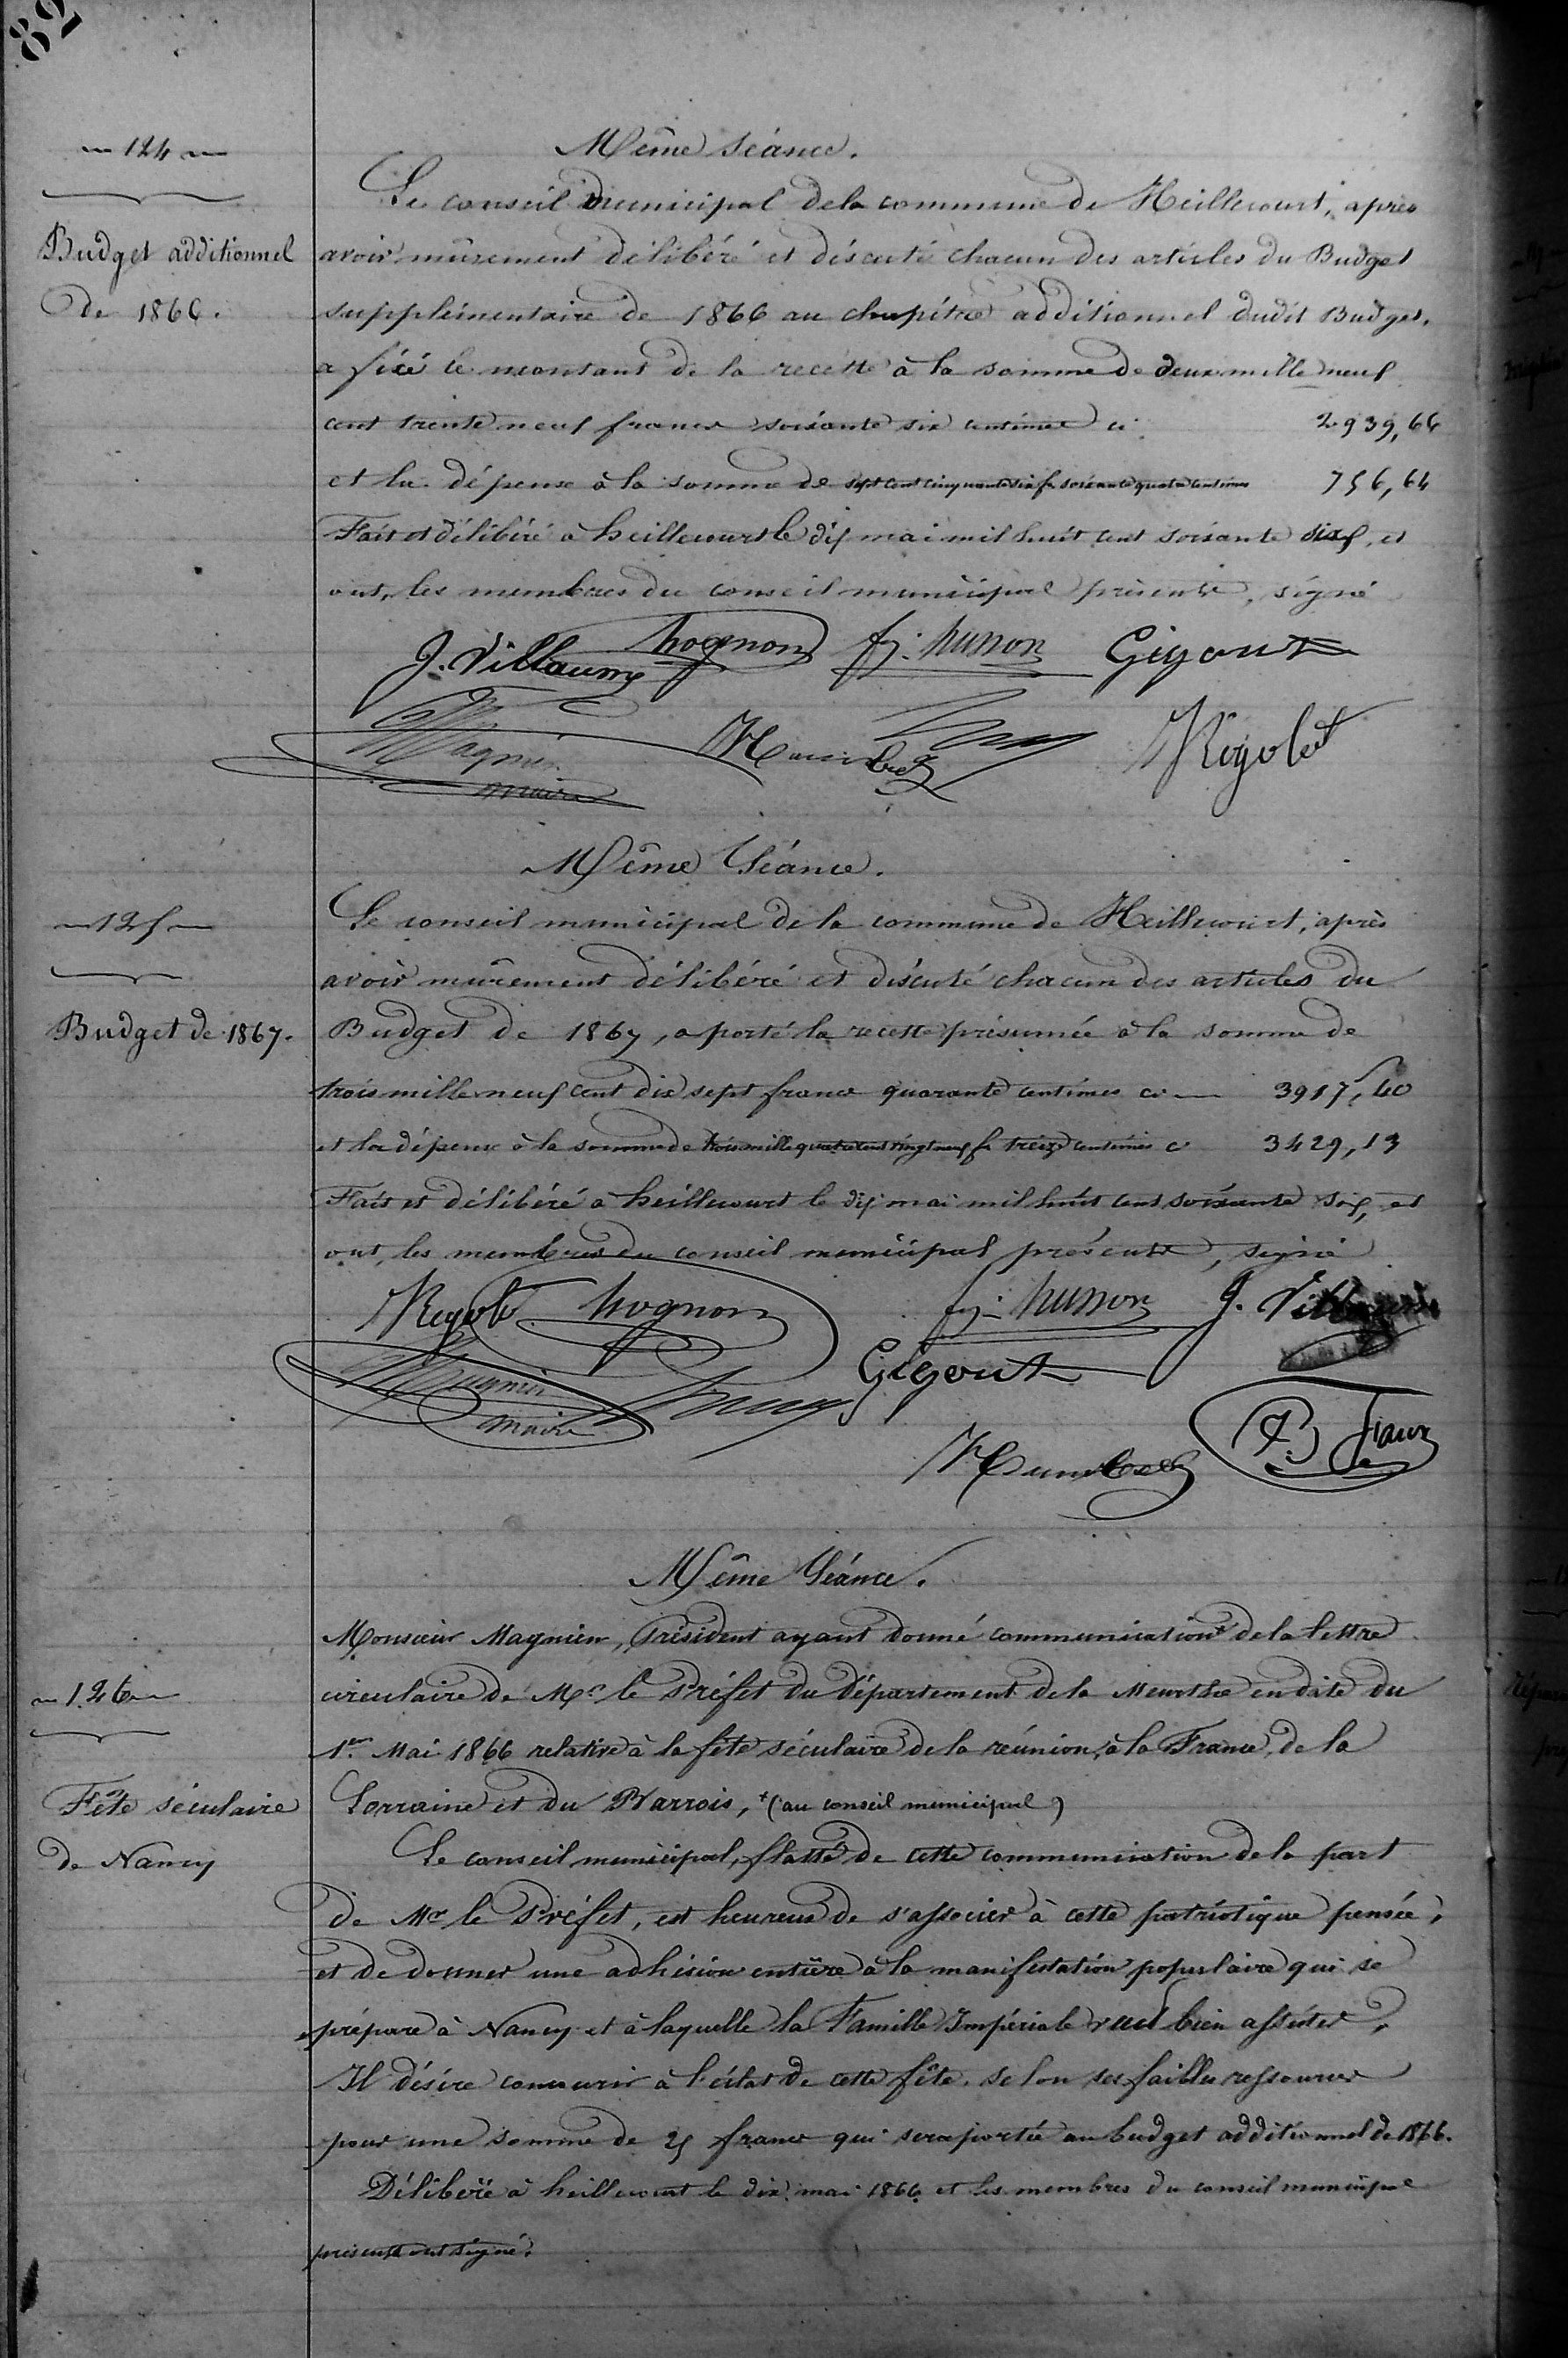 82
124
Même séance.
Le conseil municipal de la commune de Heillecourt, après
Budget additionnel
avoir mûrement délibéré et discuté chacun des articles du Budget
de 1866.
supplémentaire de 1866 au chapitre additionnel dudit Budget,
a fixé le montant de la recette à la somme de deux mille neuf
cent trente neuf francs soixante six centimes ci 2939,66
et la dépense à la somme de sept cent cinquante six fr soixante quatre centimes 756,64
Fait et délibéré à heillecourt le dix mai mil huit cent soixante six, et
ont, les membres du conseil municipal présents, signé
J. Villaume hognon fj. husson Gigout
Magnien Rigolet
maire
Même Séance.
125
Le conseil municipal de la commune de Heillecourt, après
avoir mûrement délibéré et discuté chacun des articles du
Budget de 1867.
Budget de 1867, a porté la recette présumée à la somme de
trois mille neuf cent dix sept francs quarante centimes ci 3917,40
et la dépense à la somme de trois mille quatre cent vingt neuf fr treize centimes ci 3429,13
Fait et délibéré à heillecourt le dix mai mil huit cent soixante six, et
ont, les membres du conseil municipal présents, signé
Rigolet hognon fj. husson J. Villaume
Magnien Gigout
maire
Même Séance.
Monsieur Magnien, Président ayant donné communication + de la lettre
126
circulaire de Mr. le Préfet du département de la Meurthe en date du
1er. Mai 1866 relative à la fête séculaire de la réunion, à la France, de la
Fête séculaire
Lorraine et du Barrois, + (au conseil municipal)
de Nancy
Le conseil municipal, flatté de cette communication de la part
de Mr le Préfet, est heureux de s'associer à cette patriotique pensée,
et de donner une adhésion entière à la manifestation populaire qui se
prépare à Nancy et à laquelle la Famille Impériale veut bien assister,
Il désire concourir à l'éclat de cette fête, selon ses faibles ressources
pour une somme de 25 francs qui sera portée au budget additionnel de 1866.
Délibéré à heillecourt le dix mai 1866 et les membres du conseil municipal
présents ont signé.